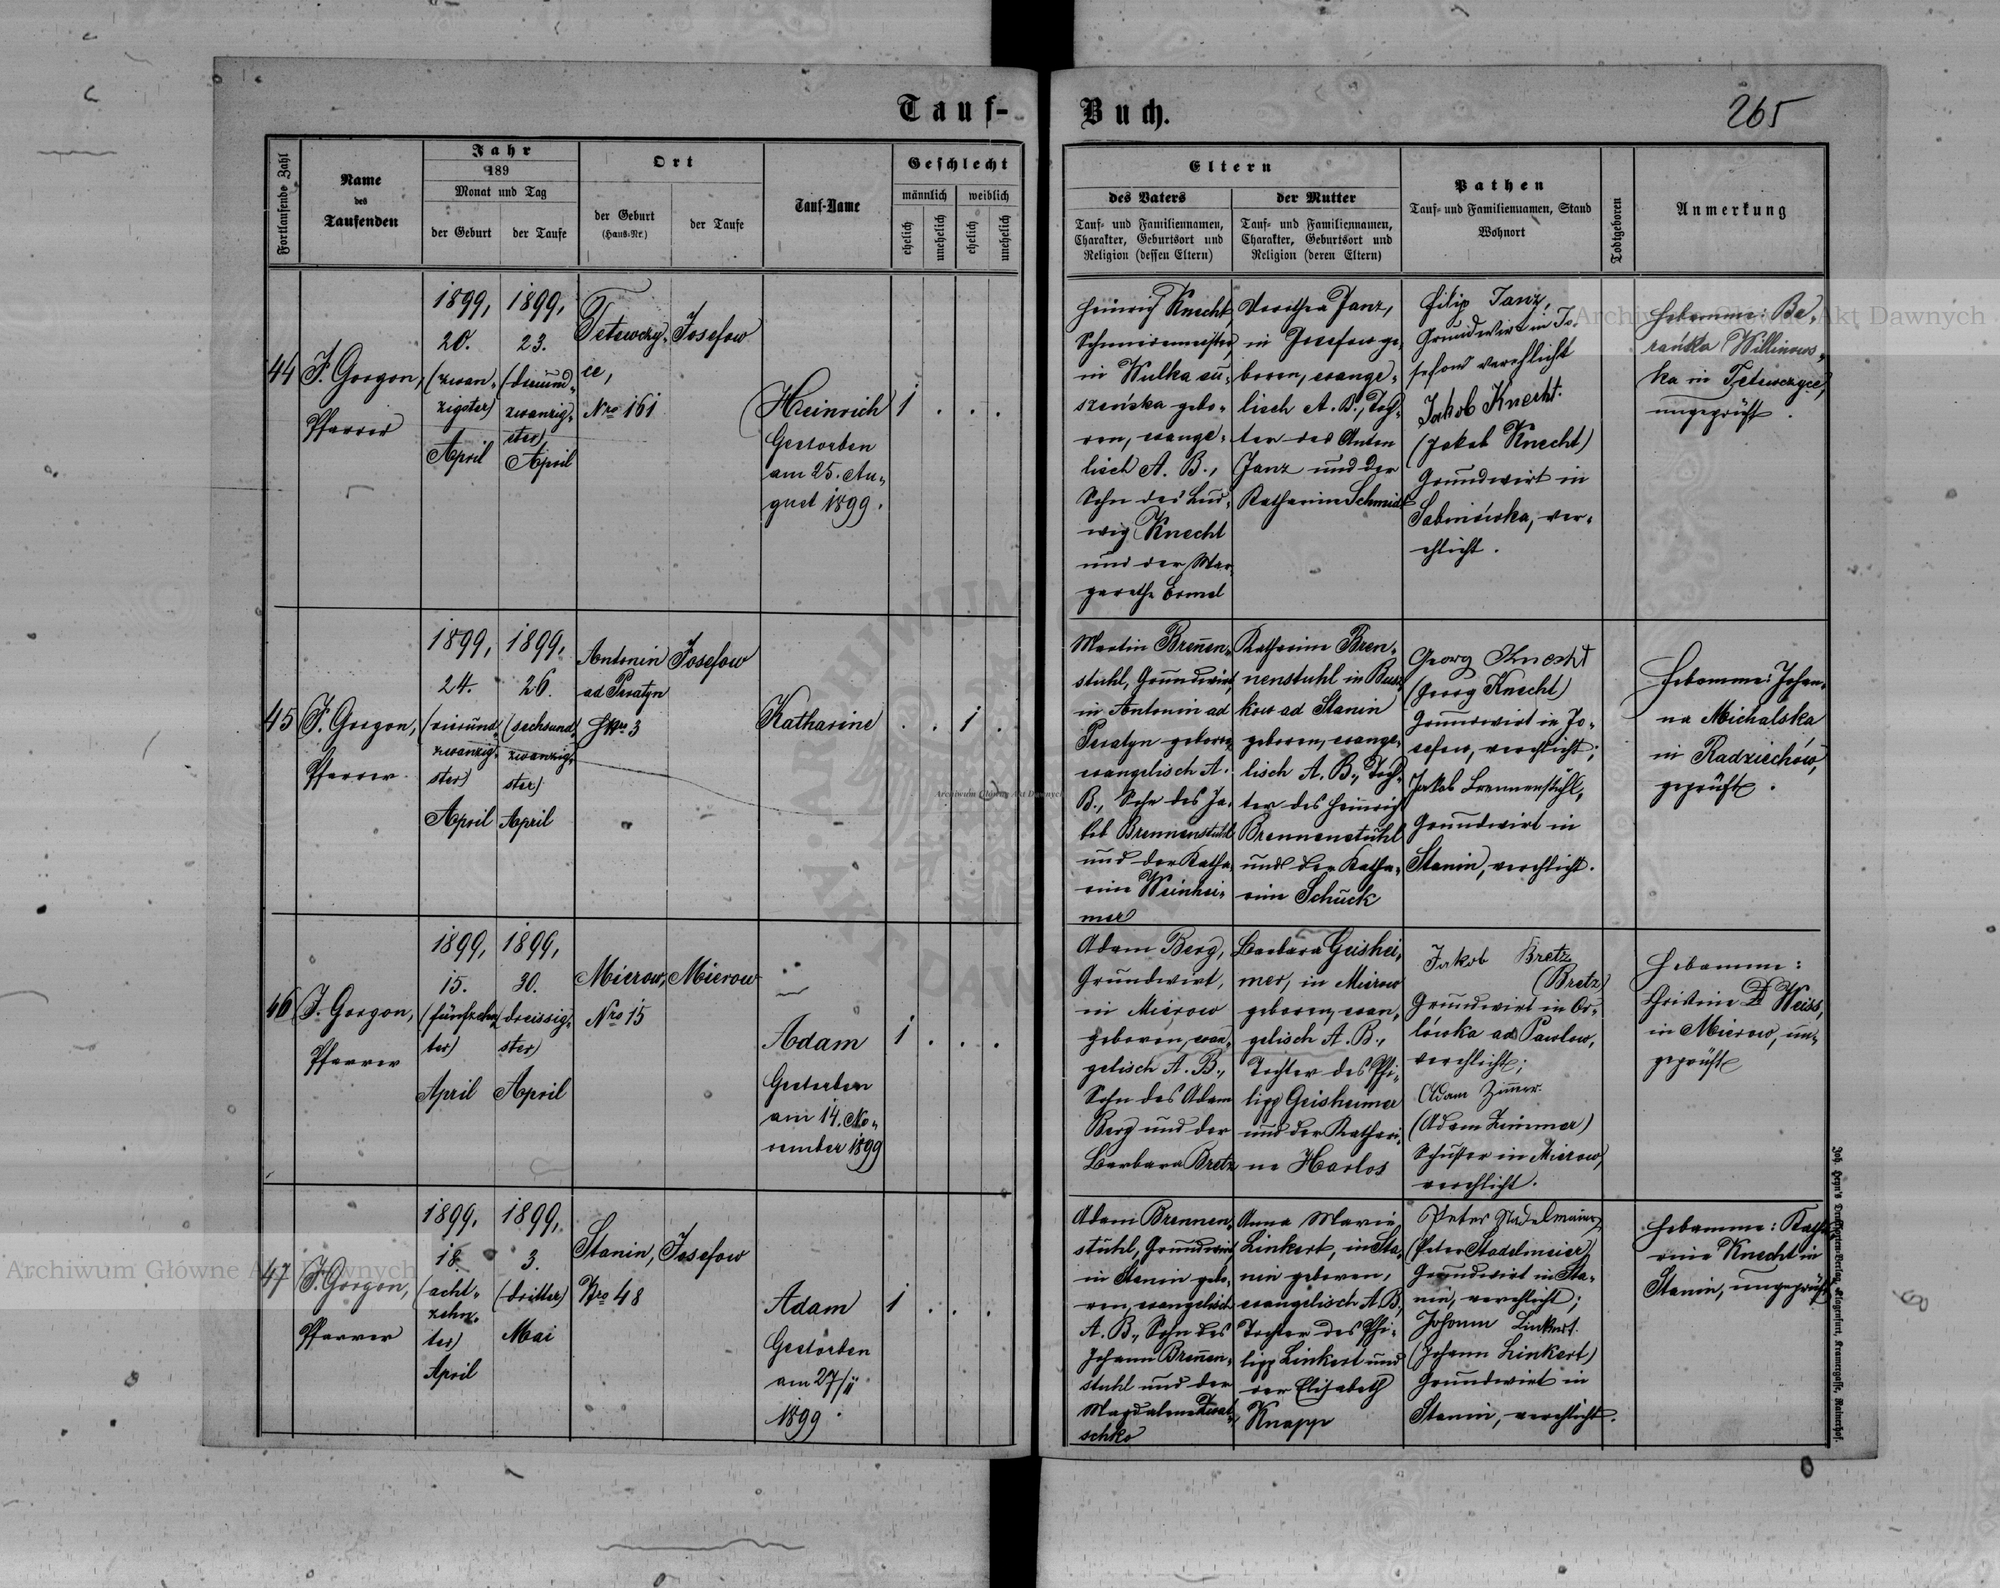 Tauf-Buch.
265
Fortlaufende Zahl
Name
des
Taufenden
Jahr
189
Monat und Tag
der Geburt
der Taufe
Ort
der Geburt
(Haus-Nr.)
der Taufe
Tauf-Name
Geschlecht
männlich
weiblich
ehelich
unehelich
ehelich
unehelich
Eltern
des Vaters
Tauf- und Familiennamen,
Charakter, Geburtsort und
Religion (dessen Eltern)
der Mutter
Tauf- und Familiennamen,
Charakter, Geburtsort und
Religion (deren Eltern)
Pathen
Tauf- und Familiennamen, Stand
Wohnort
Todtgeboren
Anmerkung
44
J. Gorgon,
Pfarrer
1899,
20.
(zwan-
zigster)
April
1899,
23.
(dreiund-
zwanzig-
ster)
April
Tetewczy-
ce,
Nro 161
Josefow
Heinrich
Gestorben
am 25. Au-
gust 1899.
1 . . .
Heinrich Knecht,
Schmiedemeister,
in Wulka su-
szeńska gebo-
ren, evange-
lisch A. B.,
Sohn des Lud-
wig Knecht
und der Mar-
garethe Ermel
Dorothea Janz,
in Josefow ge-
boren, evange-
lisch A. B., Toch-
ter des Anton
Janz und der
Katharina Schmidt
Filip Janz,
Grundwirt in Jo-
sefow verehlicht
Jakob Knecht.
(Jakob Knecht)
Grundwirt in
Sabinówka, ver-
ehlicht.
Hebamme: Ba-
rańska Willinows-
ka in Tetewczyce,
ungeprüft.
45
J. Gorgon,
Pfarrer
1899,
24.
(vierund-
zwanzig-
ster)
April
1899,
26.
(sechsund-
zwanzig-
ster)
April
Antonin
ad Peratyn
Nro 3
Josefow
Katharine
. . 1 .
Martin Brennen-
stuhl, Grundwirt,
in Antonin ad
Peratyn geboren,
evangelisch A.
B., Sohn des Ja-
kob Brennenstuhl
und der Katha-
rine Weinhei-
mer
Katharine Bren-
nenstuhl in Bus-
kow ad Stanin
geboren, evange-
lisch A. B., Toch-
ter des Heinrich
Brennenstuhl
und der Katha-
rine Schuck
Georg Knecht
(Georg Knecht)
Grundwirt in Jo-
sefow, verehlicht;
Jakob Brennenstuhl,
Grundwirt in
Stanin, verehlicht.
Hebamme: Johan-
na Michalska
in Radziechów,
geprüft.
46
J. Gorgon,
Pfarrer
1899,
15.
(fünfzehn-
ter)
April
1899,
30.
(dreissig-
ster)
April
Mierow,
Nro 15
Mierow
Adam
Gestorben
am 14. No-
vember 1899
1 . . .
Adam Berg,
Grundwirt,
in Mierow
geboren, evan-
gelisch A. B.,
Sohn des Adam
Berg und der
Barbara Bretz
Barbara Geishei-
mer, in Mierow
geboren, evan-
gelisch A. B.,
Tochter des Phi-
lipp Geisheimer
und der Kathari-
na Harlos
Jakob Bretz
(Bretz)
Grundwirt in Or-
lówka ad Pawlow,
verehlicht;
Adam Zimmer.
(Adam Zimmer)
Schuster in Mierow,
verehlicht.
Hebamme:
Christine Weiss,
in Mierow, un-
geprüft
47
J. Gorgon,
Pfarrer
1899,
18.
(acht-
zehn-
ter)
April
1899,
3.
(dritter)
Mai
Stanin,
Nro 48
Josefow
Adam
Gestorben
am 27/11
1899.
1 . . .
Adam Brennen-
stuhl, Grundwirt
in Stanin gebo-
ren, evangelisch
A. B., Sohn des
Johann Brennen-
stuhl und der
Magdalena
schko
Anna Marie
Linkert, in Sta-
nin geboren,
evangelisch A. B.,
Tochter des Phi-
lipp Linkert und
der Elisabeth
Knapp
Peter Stadelmeier,
(Peter Stadelmeier)
Grundwirt in Sta-
nin, verehlicht;
Johann Linkert.
(Johann Linkert)
Grundwirt in
Stanin, verehlicht.
Hebamme: Katha-
rine Knecht in
Stanin, ungeprüft
Archiwum Główne Akt Dawnych
Archiwum Główne Akt Dawnych
Archiwum Główne Akt Dawnych